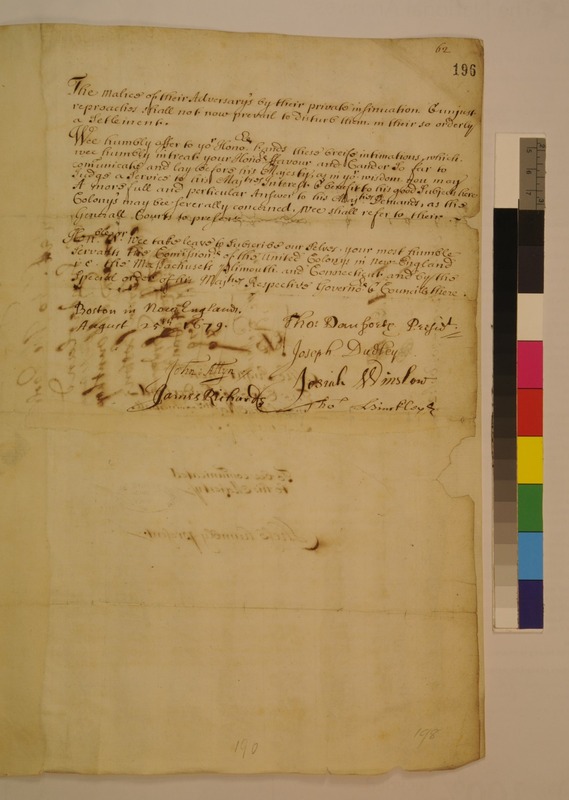 62
196
The malice of their Adversarys by their private insinuation & unjust
reproaches shall not now prevail to Disturb them in their so orderly
a Setlement.
Wee humbly offer to yor Honors hands these breife intimations, which
wee humbly intreat your Honors favour and Candor so far to
comunicate and lay before his Majesty, as in yor wisdom you may
Judge a Service to his Majtys Interest & benefit to his good Subjects here
A more full and perticular Answer to his Majtys as the
Colonys may bee severally concerned, Wee shall refer to their
Generall Courts to present
Wee take leave to Subscribe our selves your most humble
Servants The Comissionrs of the United Colonys in New England
vizt the Massachusets Plimouth and Connecticut and by the
Special order of his Majtys Respective Governors & Councils there.
Boston in New England.
August 25th 1679.
Tho: Danforth Presidt.
Joseph Dudley
John Allyn
Josiah Winslow
James Richards
Tho. Hinckley
190
198